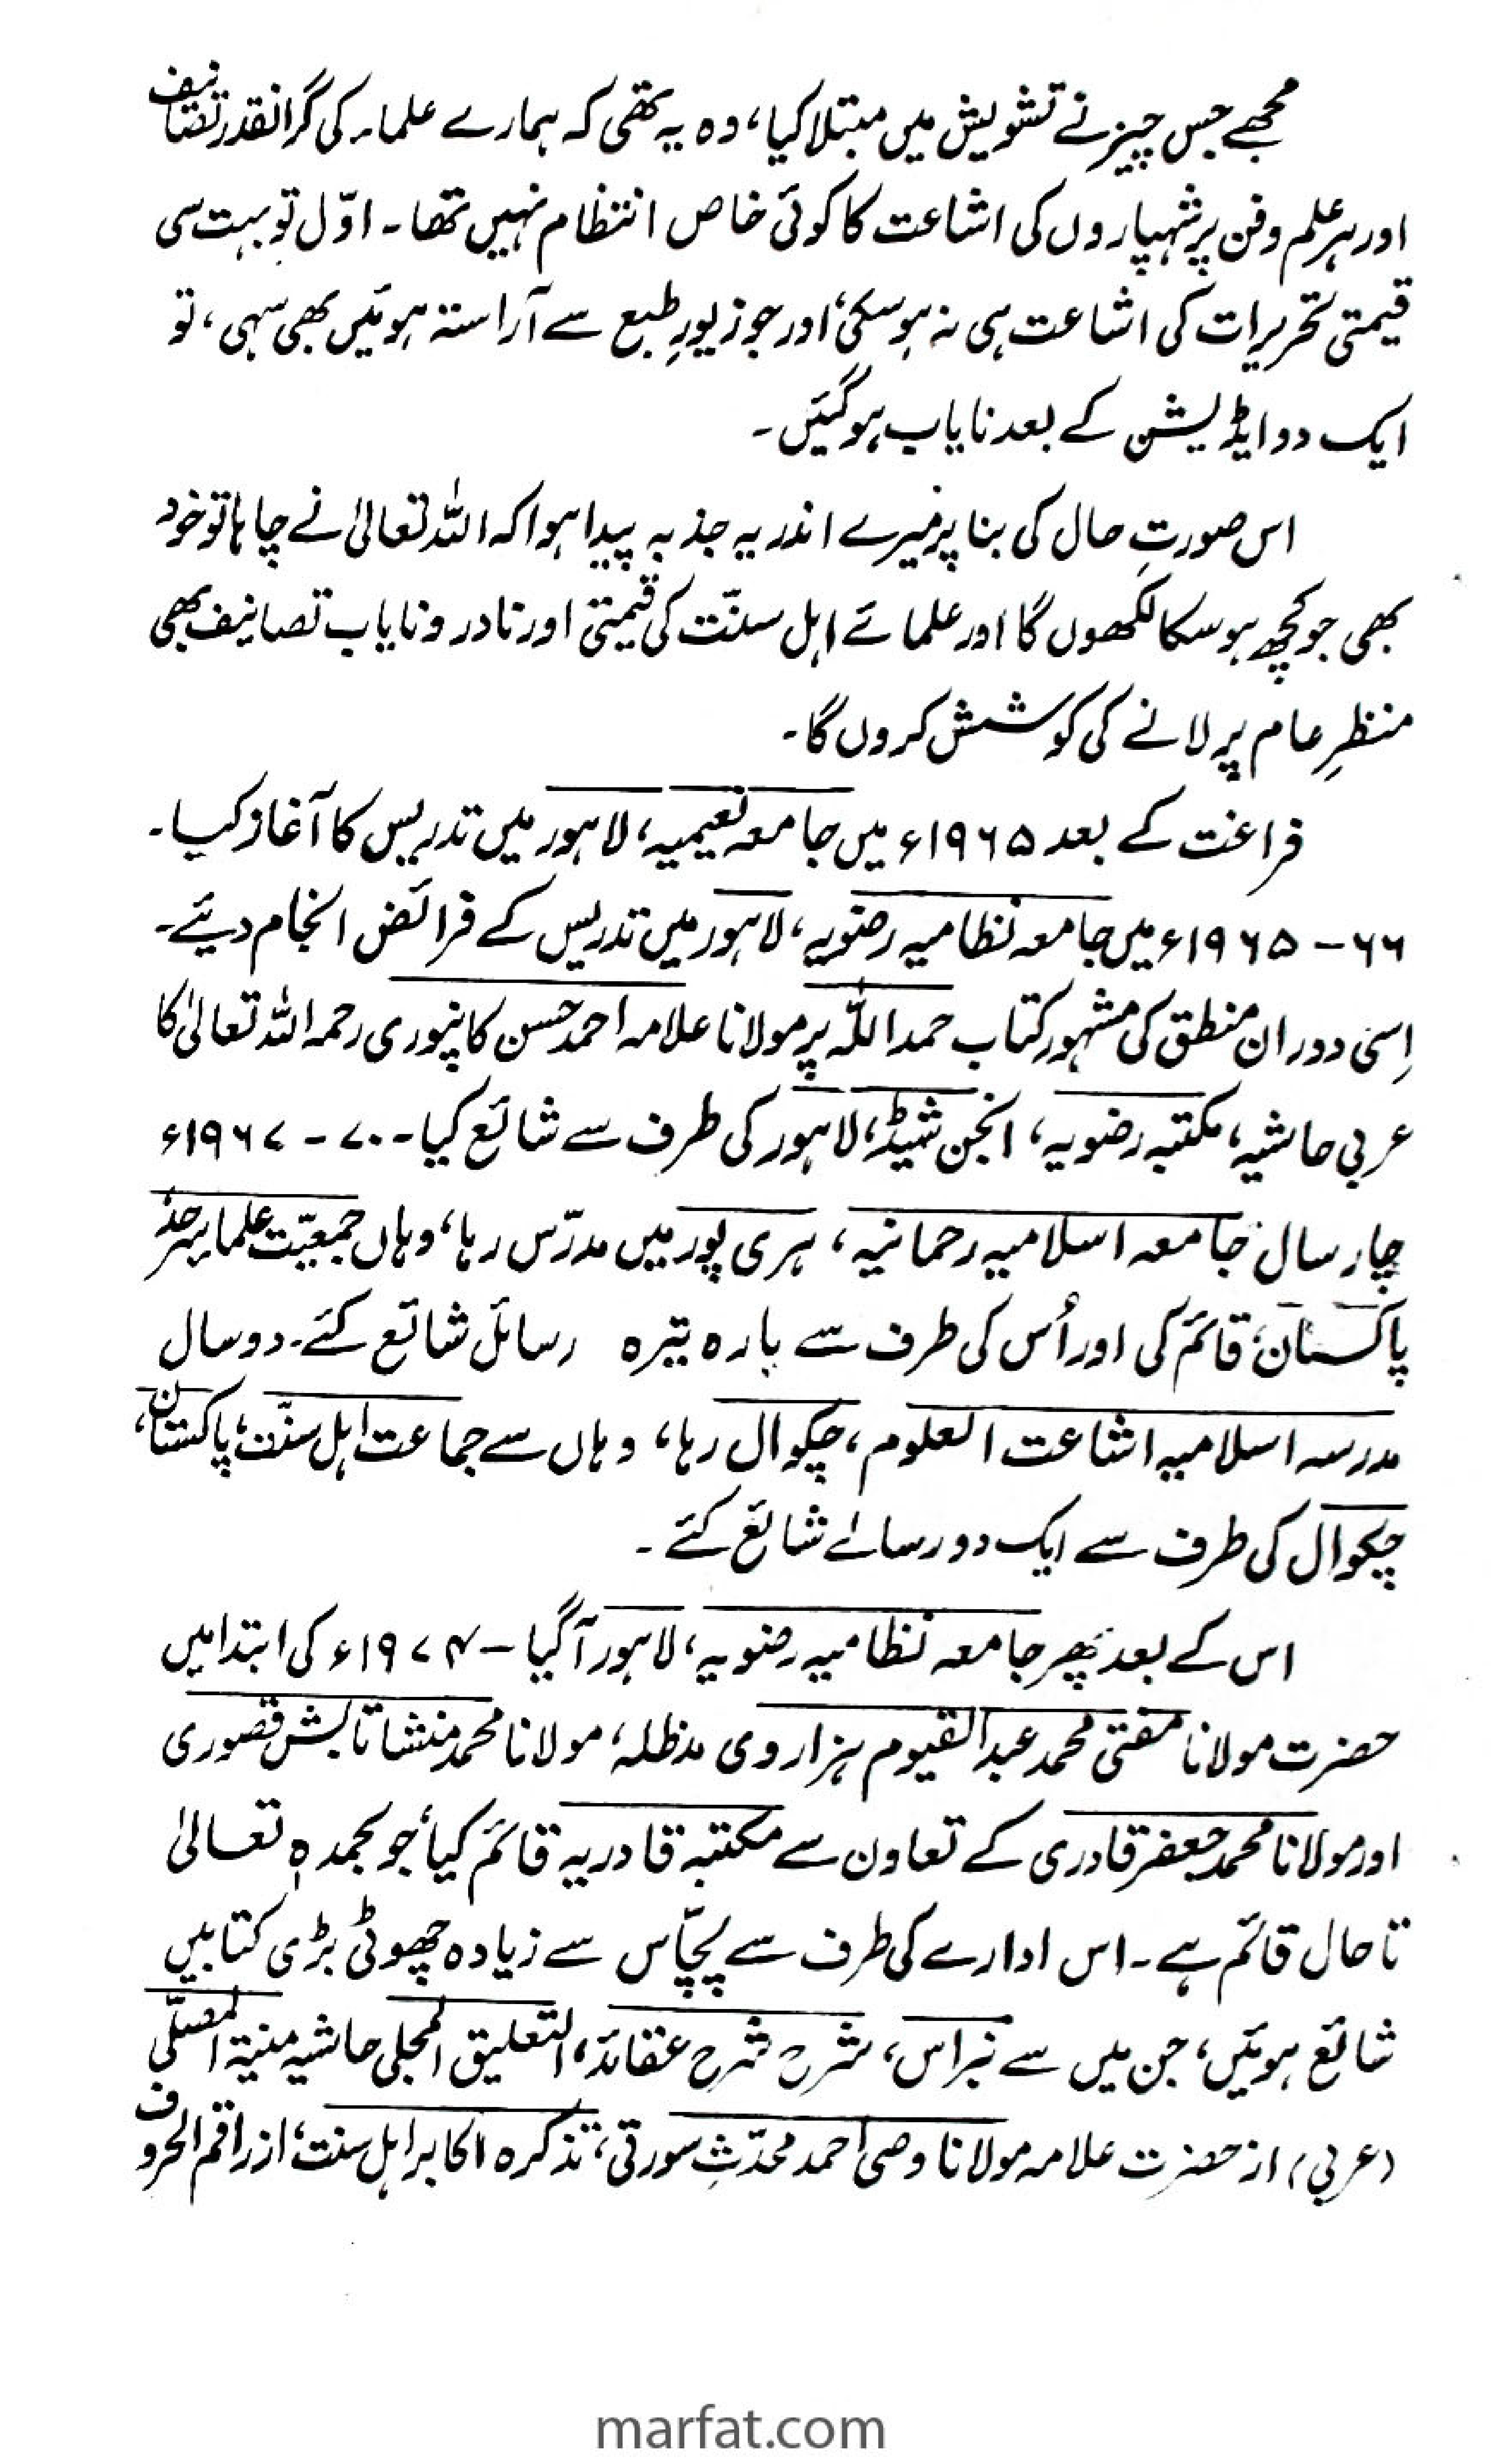 مجھے جس چیز نے تشویش میں مبتلا کیا، وہ یہ تھی کہ ہمارے علماء کی گرانقدر تصانیف
اور ہر علم و فن پر شہپاروں کی اشاعت کا کوئی خاص انتظام نہیں تھا۔ اوّل تو بہت سی
قیمتی تحریرات کی اشاعت ہی نہ ہو سکی، اور جو زیورِ طبع سے آراستہ ہوئیں بھی سہی، تو
ایک دو ایڈیشن کے بعد نایاب ہو گئیں۔
اس صورتِ حال کی بنا پر میرے اندر یہ جذبہ پیدا ہوا کہ اللہ تعالیٰ نے چاہا تو خود
بھی جو کچھ ہو سکا لکھوں گا اور علمائے اہل سنّت کی قیمتی اور نادر و نایاب تصانیف بھی
منظرِ عام پر لانے کی کوشش کروں گا۔
فراغت کے بعد ۱۹۶۵ء میں جامعہ نعیمیہ، لاہور میں تدریس کا آغاز کیا۔
۶۶ - ۱۹۶۵ء میں جامعہ نظامیہ رضویہ، لاہور میں تدریس کے فرائض انجام دیئے۔
اِسی دوران منطق کی مشہور کتاب حمد اللہ پر مولانا علامہ احمد حسن کانپوری رحمہ اللہ تعالیٰ کا
عربی حاشیہ، مکتبہ رضویہ، انجن شیڈ، لاہور کی طرف سے شائع کیا۔ ۷۰ - ۱۹۶۷ء
چار سال جامعہ اسلامیہ رحمانیہ، ہری پور میں مدرّس رہا، وہاں جمعیّت علماء سرحد
پاکستان، قائم کی اور اُس کی طرف سے بارہ تیرہ رسائل شائع کئے۔ دو سال
مدرسہ اسلامیہ اشاعت العلوم، چکوال رہا، وہاں سے جماعت اہل سنّت، پاکستان،
چکوال کی طرف سے ایک دو رسالے شائع کئے۔
اس کے بعد پھر جامعہ نظامیہ رضویہ، لاہور آگیا – ۱۹۷۴ء کی ابتدا میں
حضرت مولانا مفتی محمد عبدالقیوم ہزاروی مدظلہ، مولانا محمد منشا تابش قصوری
اور مولانا محمد جعفر قادری کے تعاون سے مکتبہ قادریہ قائم کیا، جو بحمدہٖ تعالیٰ
تا حال قائم ہے۔ اس ادارے کی طرف سے پچّاس سے زیادہ چھوٹی بڑی کتابیں
شائع ہوئیں، جن میں سے نبراس، شرح شرح عقائد، التعلیق المجلی حاشیہ منیۃ المصلّی
(عربی) از حضرت علامہ مولانا وصی احمد محدّثِ سورتی، تذکرہ اکابر اہل سنت، از راقم الحروف
marfat.com